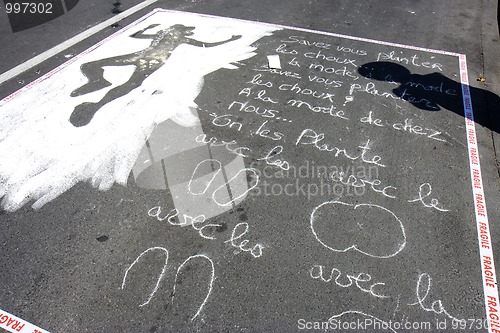 Savez vous planter
les choux à la mode
à la mode
Savez vous planter
les choux
À la mode de chez
Nous...
"On les plante
avec les
avec le
avec les
avec la
FRAGILE FRAGILE FRAGILE FRAGILE FRAGILE FRAGILE
FRAGILE FRAGILE